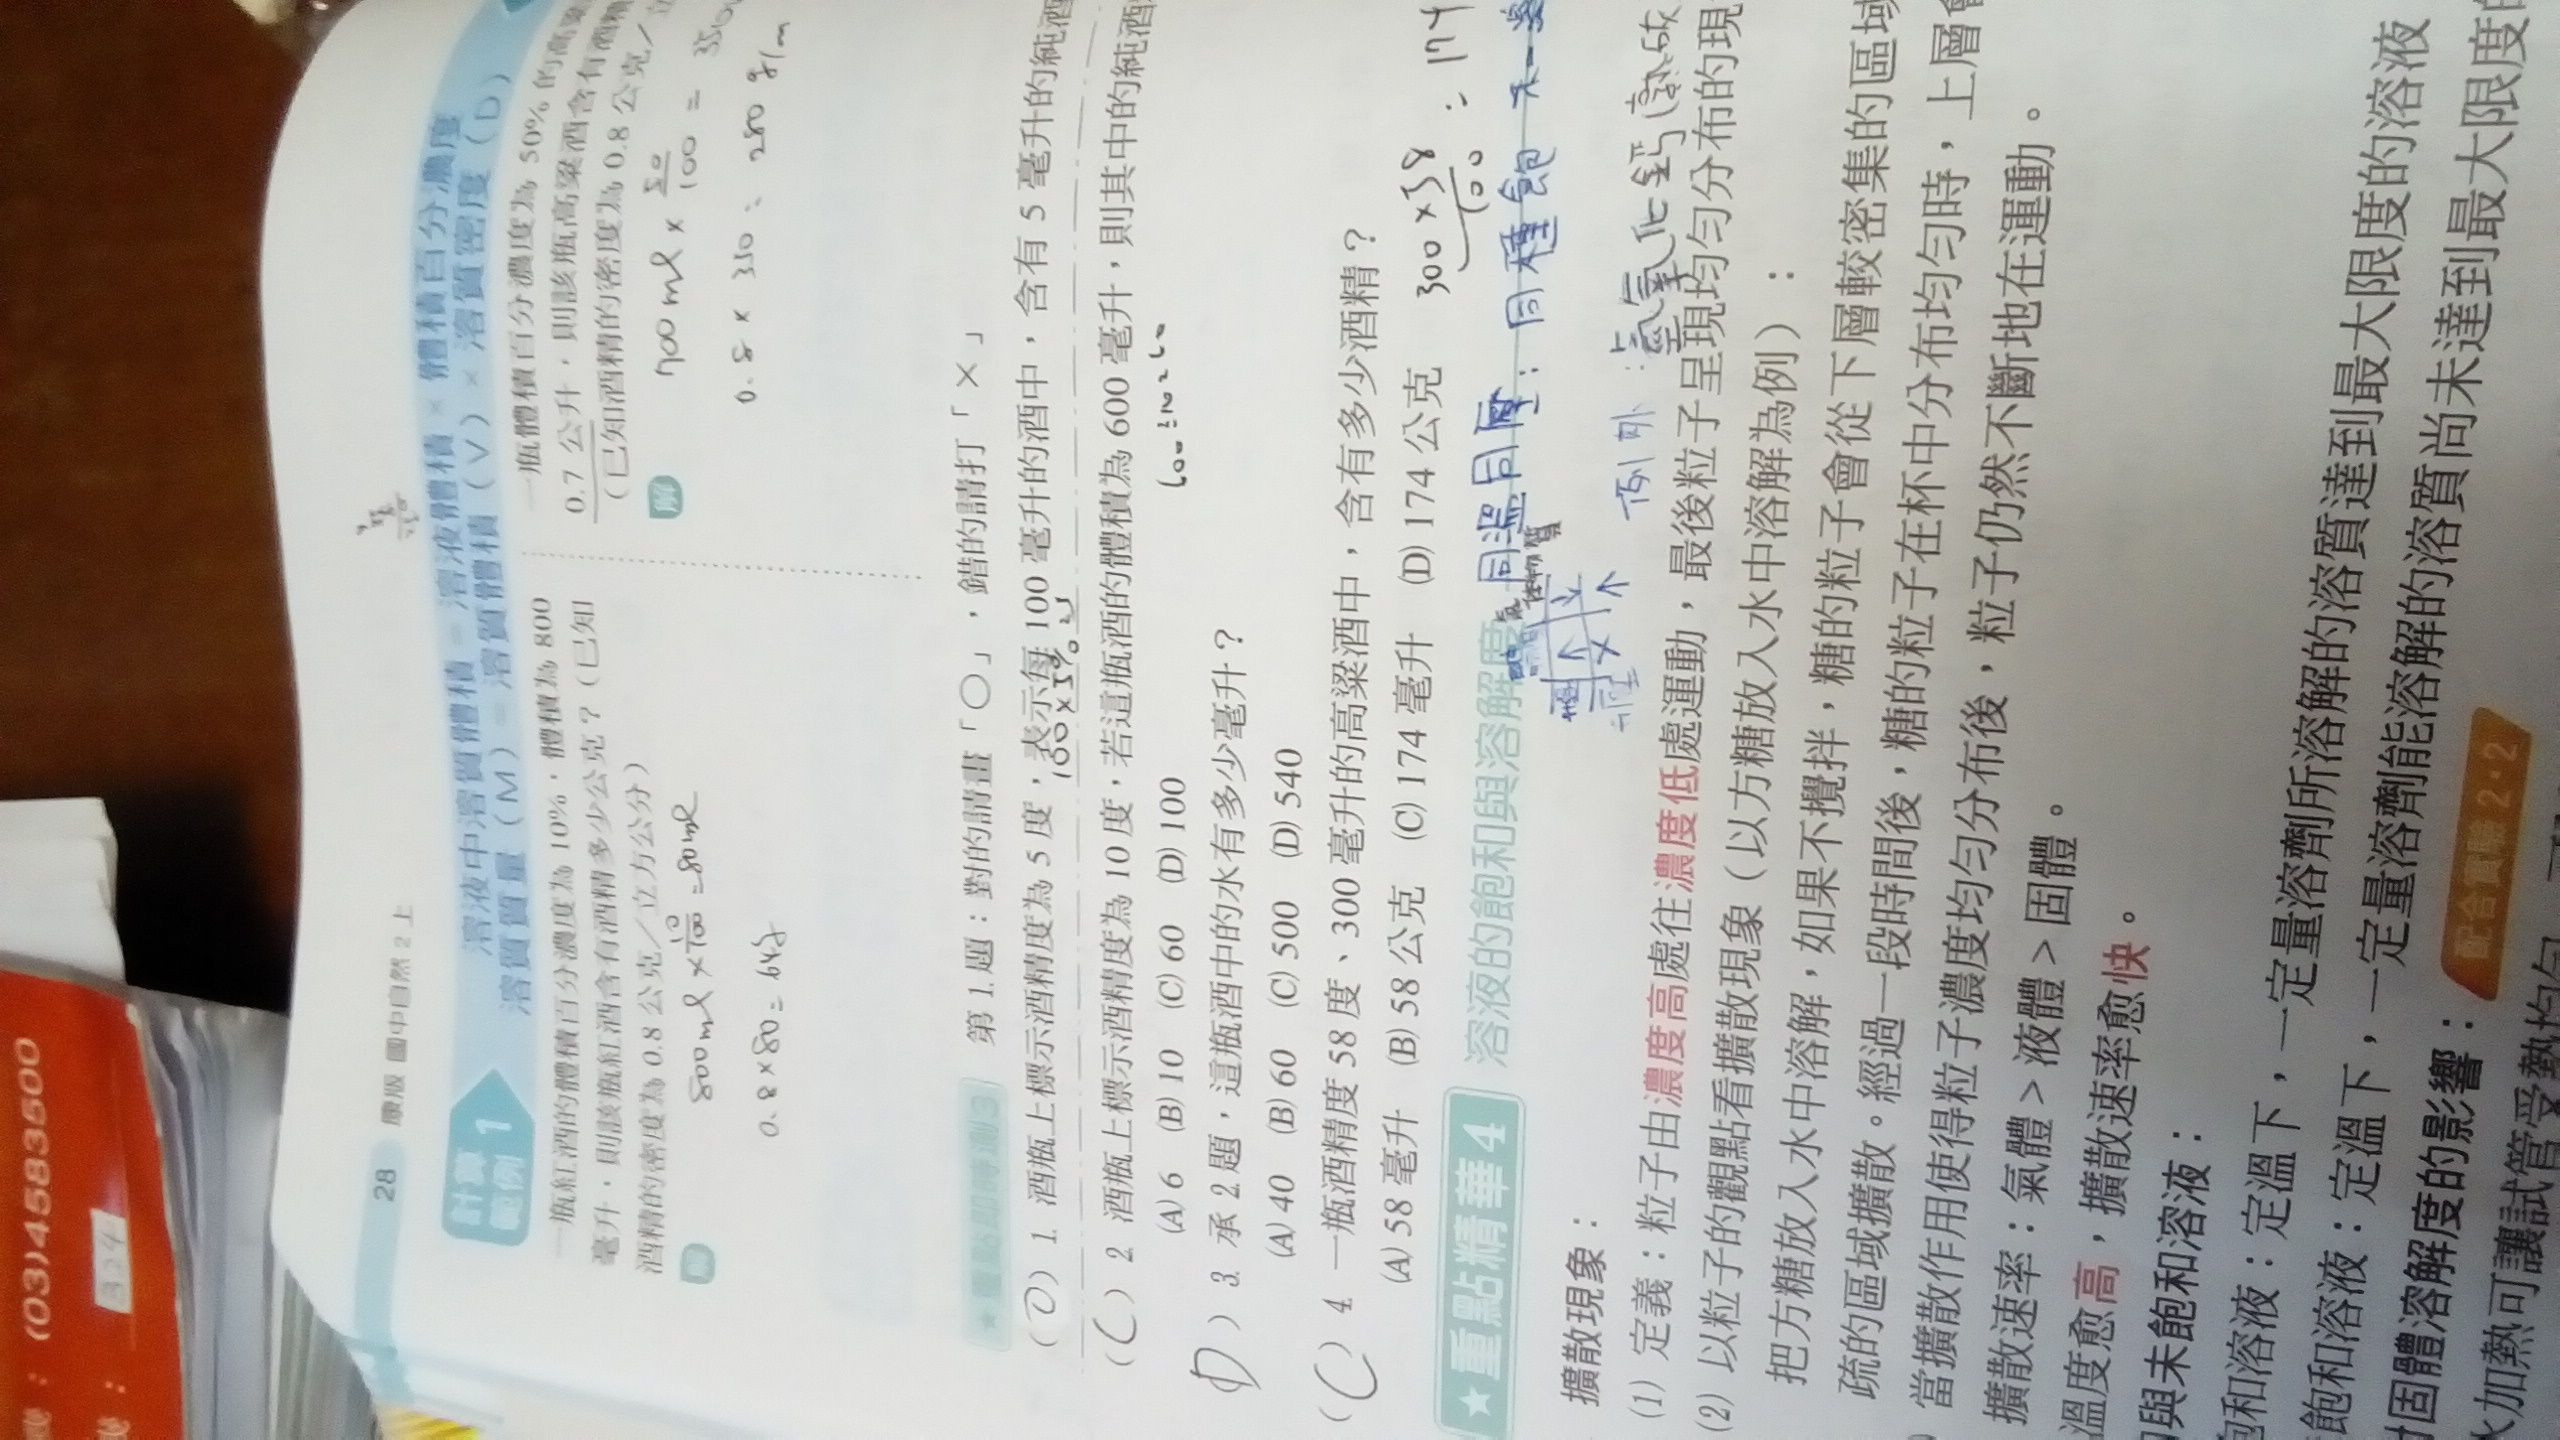 (03)4583500
324
28 康版 國中自然 2 上
計算範例 1
溶液中溶質體積 = 溶液體積 × 體積百分濃度
溶質質量（M）= 溶質體積（V）× 溶質密度（D）
一瓶紅酒的體積百分濃度為 10%，體積為 800
毫升，則該瓶紅酒含有酒精多少公克？（已知
酒精的密度為 0.8 公克／立方公分）
解
800 ml × 10/100 = 80 ml
0.8 × 80 = 64g
一瓶體積百分濃度為 50% 的高粱
0.7 公升，則該瓶高粱酒含有酒精
（已知酒精的密度為 0.8 公克／立
解
700 ml × 50/100 = 350
0.8 × 350 = 280 g/m
★重點即時測 3 第 1.題：對的請畫「○」，錯的請打「×」
(O) 1. 酒瓶上標示酒精度為 5 度，表示每 100 毫升的酒中，含有 5 毫升的純酒
100×5%=5
(C) 2. 酒瓶上標示酒精度為 10 度，若這瓶酒的體積為 600 毫升，則其中的純酒
(A) 6 (B) 10 (C) 60 (D) 100
(D) 3. 承 2.題，這瓶酒中的水有多少毫升？
(A) 40 (B) 60 (C) 500 (D) 540
(C) 4. 一瓶酒精度 58 度、300 毫升的高粱酒中，含有多少酒精？
(A) 58 毫升 (B) 58 公克 (C) 174 毫升 (D) 174 公克
300 × 58/100 = 174
★重點精華 4 溶液的飽和與溶解度
同溫同壓：同種飽
例外：氫氧化鈣
擴散現象：
(1) 定義：粒子由濃度高處往濃度低處運動，最後粒子呈現均勻分布的現
(2) 以粒子的觀點看擴散現象（以方糖放入水中溶解為例）：
把方糖放入水中溶解，如果不攪拌，糖的粒子會從下層較密集的區域
疏的區域擴散。經過一段時間後，糖的粒子在杯中分布均勻時，上層會
當擴散作用使得粒子濃度均勻分布後，粒子仍然不斷地在運動。
擴散速率：氣體 > 液體 > 固體。
溫度愈高，擴散速率愈快。
與未飽和溶液：
飽和溶液：定溫下，一定量溶劑所溶解的溶質達到最大限度的溶液
飽和溶液：定溫下，一定量溶劑能溶解的溶質尚未達到最大限度的
對固體溶解度的影響： 配合實驗 2・2
水加熱可讓試管受熱均勻